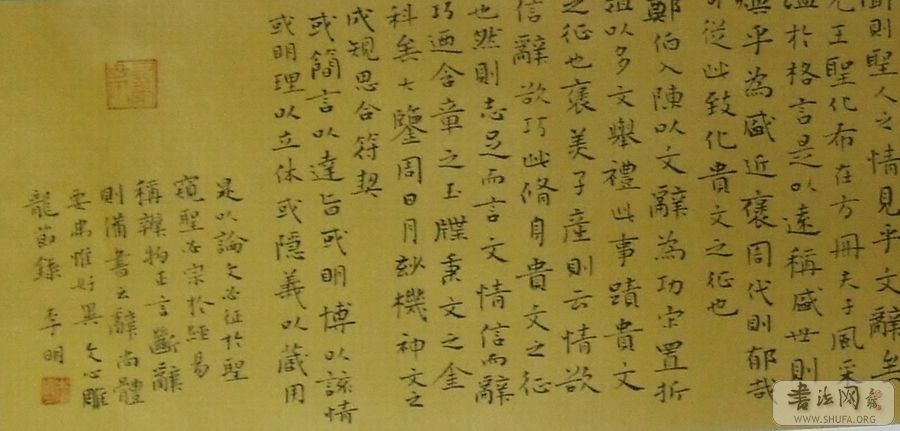 則聖人之情見乎文辭矣
先王聖化布在方冊夫子風采
溢於格言是以遠稱盛世則
煥乎為盛近褒周代則郁哉
可從此致化貴文之征也
鄭伯入陳以文辭為功宋置折
俎以多文舉禮此事蹟貴文
之征也褒美子產則云情欲
信辭欲巧此修身貴文之征
也然則志足而言文情信而辭
巧迺含章之玉牒秉文之金
科矣夫鑒周日月玅機神文之
成規思合符契
或簡言以達旨或明博以該情
或明理以立体或隱義以藏用
是以論文必征於聖
窺聖必宗於經易
稱辨物正言斷辭
則備書云辭尚體
要弗惟好異文心雕
龍節錄 李明
書法网
WWW.SHUFA.ORG